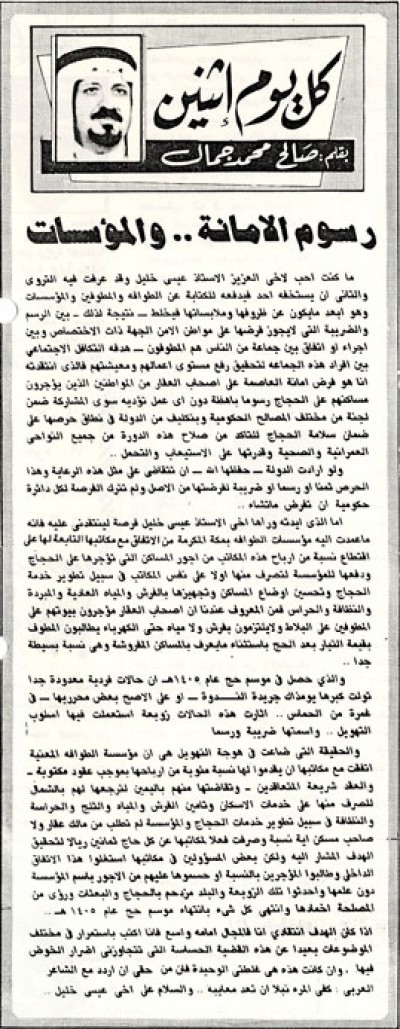 كل يوم إثنين
بقلم: صالح محمد جمال
رسوم الامانة .. والمؤسسات
ما كنت احب لاخى العزيز الاستاذ عيسى خليل وقد عرفت فيه التروى
والتانى ان يستخفه احد فيدفعه للكتابة عن الطوافه والمطوفين والمؤسسات
وهو ابعد مايكون عن ظروفها وملابساتها فيخلط ــ نتيجة لذلك ــ بين الرسم
والضريبة التى لايجوز فرضها على مواطن الامن الجهة ذات الاختصاص وبين
اجراء او اتفاق بين جماعة من الناس هم المطوفون ــ هدفه التكافل الاجتماعي
بين افراد هذه الجماعه لتحقيق رفع مستوى اعمالهم ومعيشتهم فالذى انتقدته
انا هو فرض امانة العاصمة على اصحاب العقار من المواطنين الذين يؤجرون
مساكنهم على الحجاج رسوما باهظة دون اى عمل تؤديه سوى المشاركة ضمن
لجنة من مختلف المصالح الحكومية وبتكليف من الدولة فى نطاق حرصها على
ضمان سلامة الحجاج للتاكد من صلاح هذه الدورة من جميع النواحى
العمرانية والصحية وقدرتها على الاستيعاب والتحمل ..
ولو ارادت الدولة ــ حفظها الله ــ ان تتقاضى على مثل هذه الرعاية وهذا
الحرص ثمنا او رسما او ضريبة لفرضتها من الاصل ولم تترك الفرصة لكل دائرة
حكومية ان تفرض ماتشاء ..
اما الذى ابدته وراها اخى الاستاذ عيسى خليل فرصة لينتقدنى عليه فانه
ماعمدت اليه مؤسسات الطوافه بمكة المكرمة من الاتفاق مع مكاتبها التابعة لها على
اقتطاع نسبة من ارباح هذه المكاتب من اجور المساكن التى تؤجرها على الحجاج
ودفعها للمؤسسة لتصرف منها اولا على نفس المكاتب فى سبيل تطوير خدمة
الحجاج وتحسين اوضاع المساكن وتجهيزها بالفرش والمياه العادية والمبردة
والنظافة والحراس فمن المعروف عندنا ان اصحاب العقار مؤجرون بيوتهم على
المطوفين على البلاط ولايلتزمون بفرش ولا مياه حتى الكهرباء يطالبون المطوف
بقيمة التيار بعد الحج باستثناء مايعرف بالمساكن المفروشة وهى نسبة بسيطة
جدا ..
والذى حصل فى موسم حج عام ١٤٠٥هـ ان حالات فردية معدودة جدا
تولت كبرها يومذاك جريدة الندوة ــ او على الاصح بعض محرريها ــ فى
غمرة من الحماس .. اثارت هذه الحالات زوبعة استعملت فيها اسلوب
التهويل .. واسمتها ضريبة ورسما
والحقيقة التى ضاعت فى هوجة التهويل هى ان مؤسسة الطوافه المعنية
اتفقت مع مكاتبها ان يقدموا لها نسبة مئوية من ارباحها بموجب عقود مكتوبة ــ
والعقد شريعة المتعاقدين ــ وتقاضتها منهم باليمين لترجعها لهم بالشمال
للصرف منها على خدمات الاسكان وتامين الفرش والمياه والثلج والحراسة
والنظافة فى سبيل تطوير خدمات الحجاج والمؤسسة لم تطلب من مالك عقار ولا
صاحب مسكن اية نسبة وصرفت فعلا لمكاتبها عن كل حاج ثمانين ريالا لتحقيق
الهدف المشار اليه ولكن بعض المسؤولين فى مكاتبها استغلوا هذا الاتفاق
الداخلى وطالبوا المؤجرين بالنسبة او حسموها عليهم من الاجور باسم المؤسسة
دون علمها واحدثوا تلك الزوبعة والبلد مزدحم بالحجاج والبعثات ورؤى من
المصلحة اخمادها وانتهى كل شىء بانتهاء موسم حج عام ١٤٠٥ هـ ..
اذا كان الهدف انتقادي انا فالمجال امامه واسع فانا اكتب باستمرار فى مختلف
الموضوعات بعيدا عن هذه القضية الحساسة التى تتجاوزنى اضرار الخوض
فيها . وان كانت هذه هى غلطتى الوحيدة فان من حقى ان اردد مع الشاعر
العربى : كفى المرء نبلا ان تعد معايبه .. والسلام على اخى عيسى خليل ..